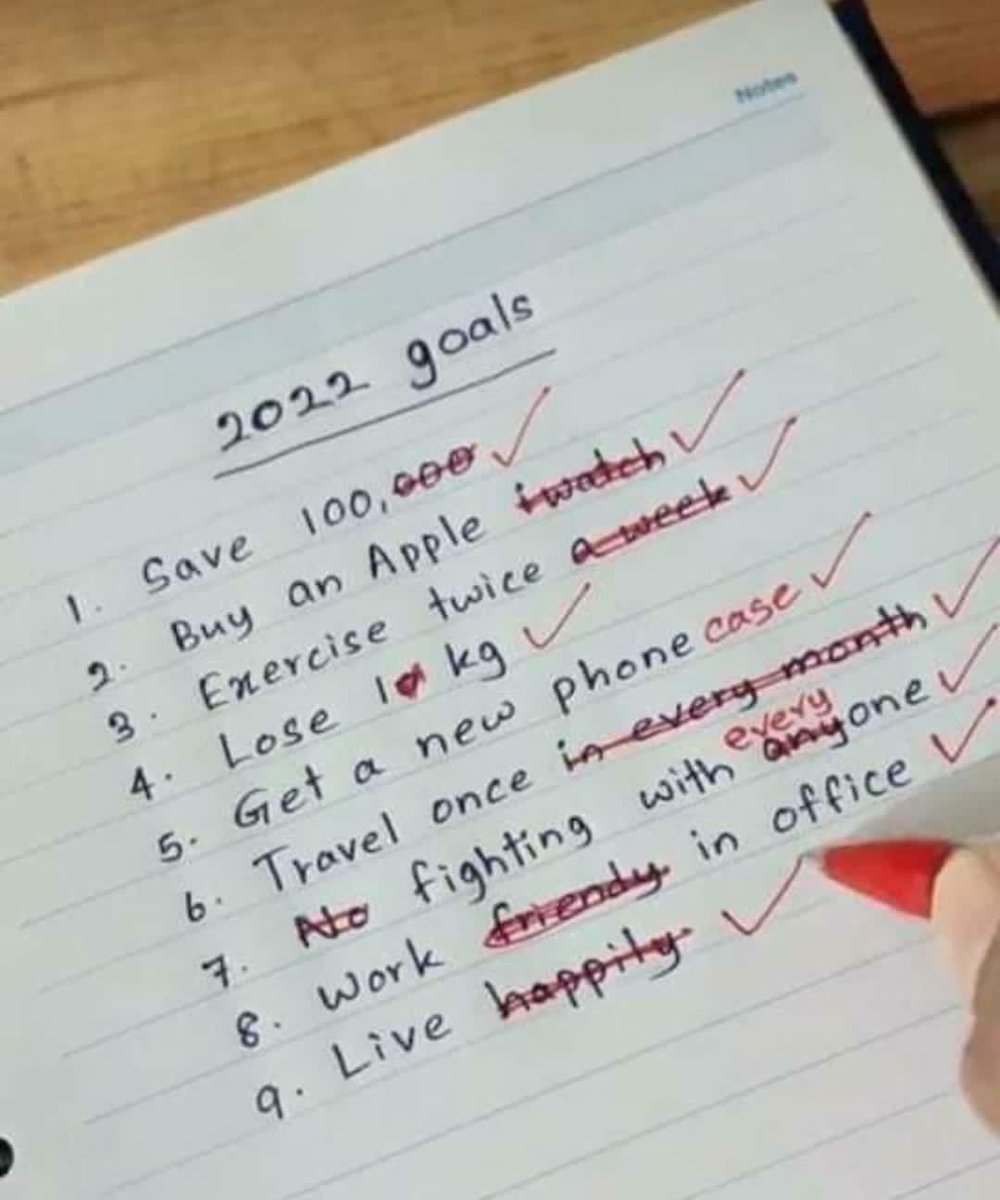 Notes
2022 goals
1. Save 100,000
2. Buy an Apple iwatch
3. Exercise twice a week
4. Lose 10 kg
5. Get a new phone case
6. Travel once in every month
every
7. No fighting with anyone
8. Work friendy in office
9. Live happily